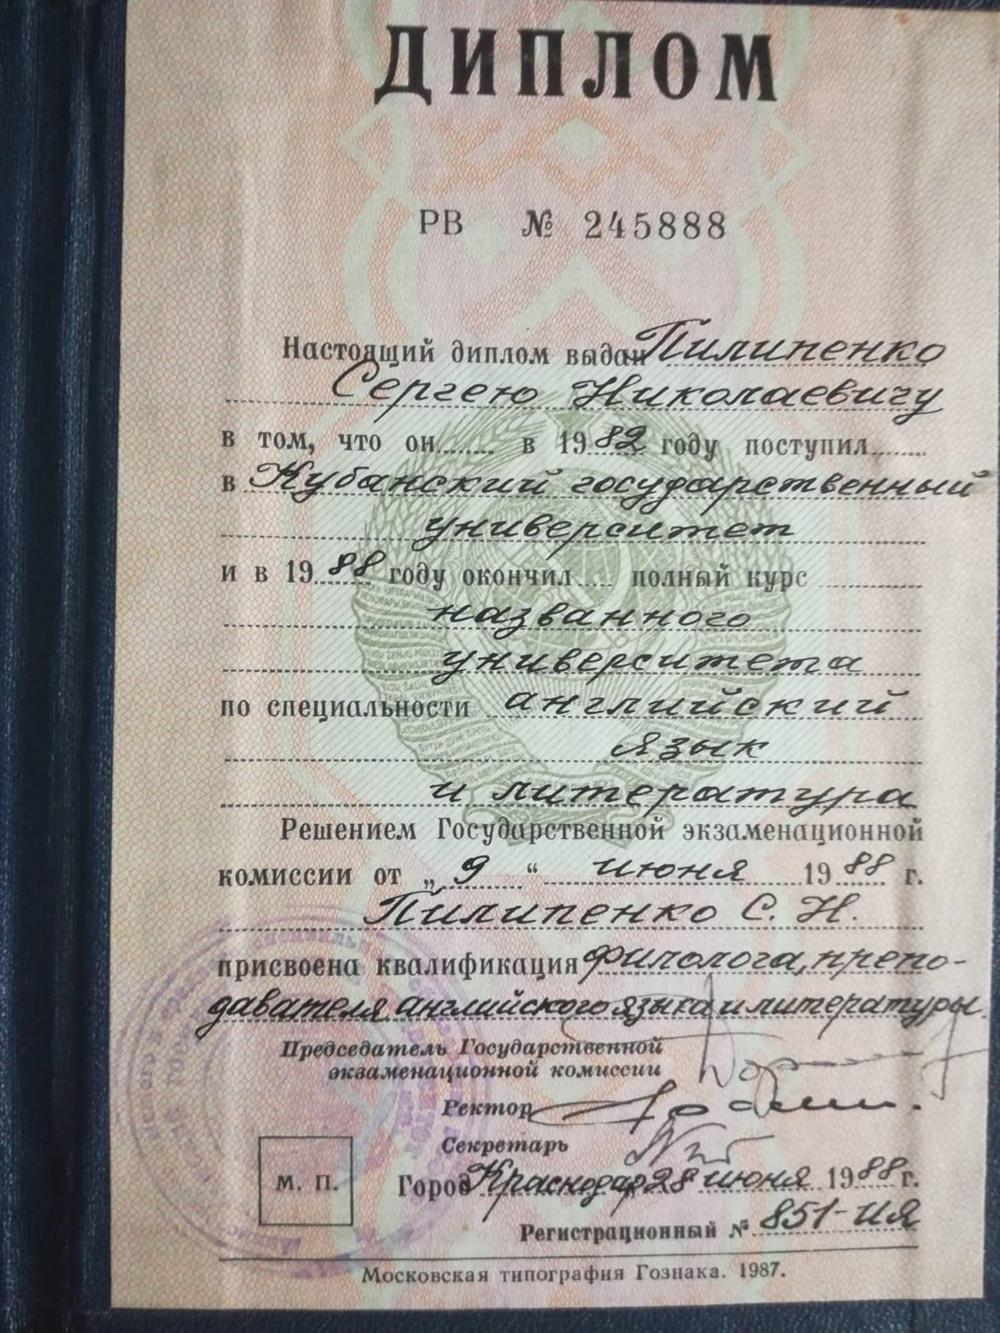 ДИПЛОМ
РВ № 245888
Настоящий диплом выдан Пилипенко
Сергею Николаевичу
в том, что он в 1982 году поступил
в Кубанский государственный
университет
и в 1988 году окончил полный курс
названного
университета
по специальности английский
язык
и литература
Решением Государственной экзаменационной
комиссии от „9“ июня 1988 г.
Пилипенко С. Н.
присвоена квалификация филолога, препо-
давателя английского языка и литературы.
Председатель Государственной
экзаменационной комиссии
Ректор
Секретарь
М. П.
Город Краснодар, 28 июня 1988 г.
Регистрационный № 851-ИЯ
Московская типография Гознака. 1987.